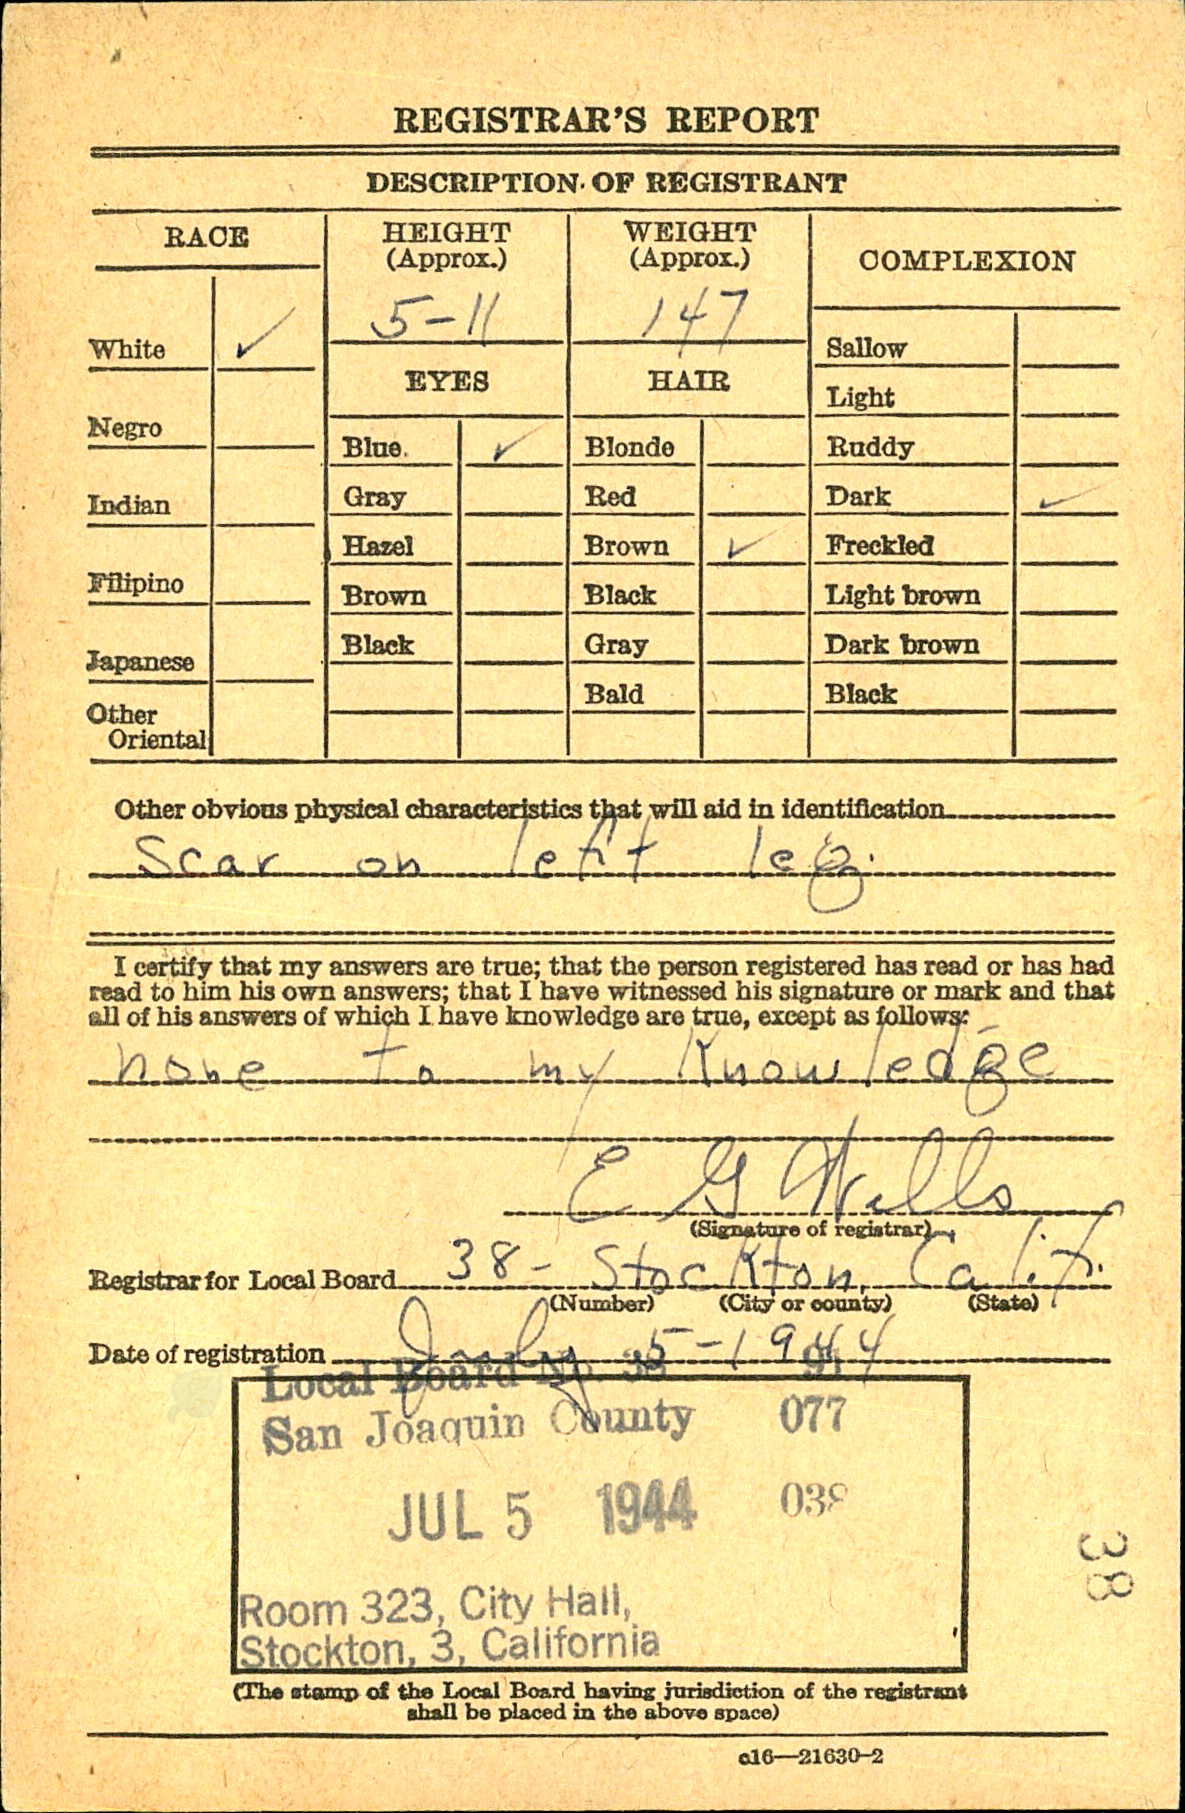 REGISTRAR'S REPORT
DESCRIPTION OF REGISTRANT
RACE
HEIGHT
(Approx.)
WEIGHT
(Approx.)
COMPLEXION
5-11
147
White ✓
Sallow
EYES
HAIR
Light
Negro
Blue ✓
Blonde
Ruddy
Indian
Gray
Red
Dark ✓
Hazel
Brown ✓
Freckled
Filipino
Brown
Black
Light brown
Japanese
Black
Gray
Dark brown
Bald
Black
Other
Oriental
Other obvious physical characteristics that will aid in identification
Scar on left leg.
I certify that my answers are true; that the person registered has read or has had
read to him his own answers; that I have witnessed his signature or mark and that
all of his answers of which I have knowledge are true, except as follows:
none to my Knowledge
E G Wills
(Signature of registrar)
Registrar for Local Board 38 - Stockton, Calif.
(Number) (City or county) (State)
Date of registration July 5-1944
Local Board No. 38
San Joaquin County 077
JUL 5 1944 038
Room 323, City Hall,
Stockton, 3, California
38
(The stamp of the Local Board having jurisdiction of the registrant
shall be placed in the above space)
c16—21630-2